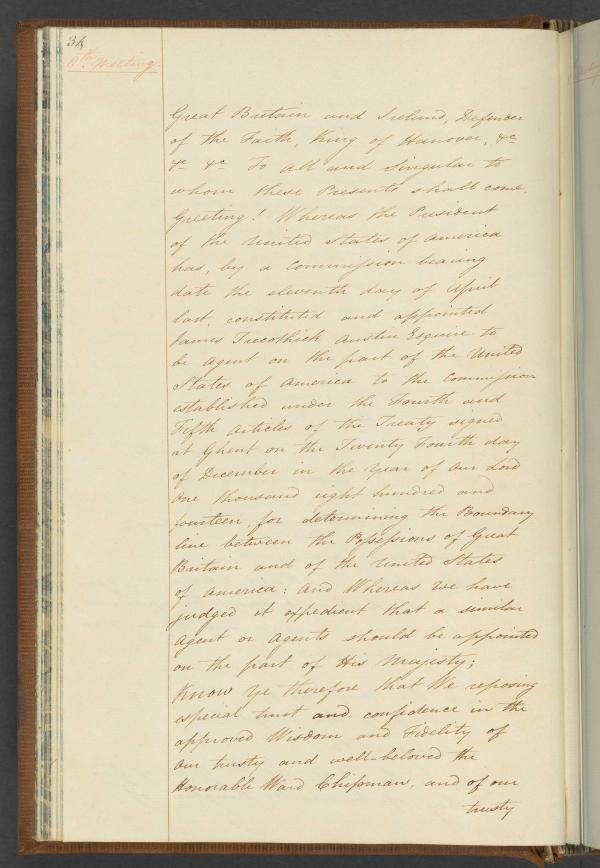 34
8th Meeting.
Great Britain and Ireland, Defender
of the Faith, King of Hanover, &c
&c &c To all and Singular to
whom these Presents shall come,
Greeting! Whereas the President
of the United States of America
has, by a Commission bearing
date the eleventh day of April
last, constituted and appointed
James Trecothick Austin Esquire to
be Agent on the part of the United
States of America to the Commission
established under the Fourth and
Fifth Articles of the Treaty signed
at Ghent on the Twenty Fourth day
of December in the Year of Our Lord
One thousand eight hundred and
fourteen, for determining the Boundary
line between the Possessions of Great
Britain and of the United States
of America: And Whereas we have
judged it expedient that a similar
Agent or Agents should be appointed
on the part of His Majesty;
Know Ye therefore that We reposing
especial trust and confidence in the
approved Wisdom and Fidelity of
Our trusty and well-beloved the
Honorable Ward Chipman, and of our
trusty